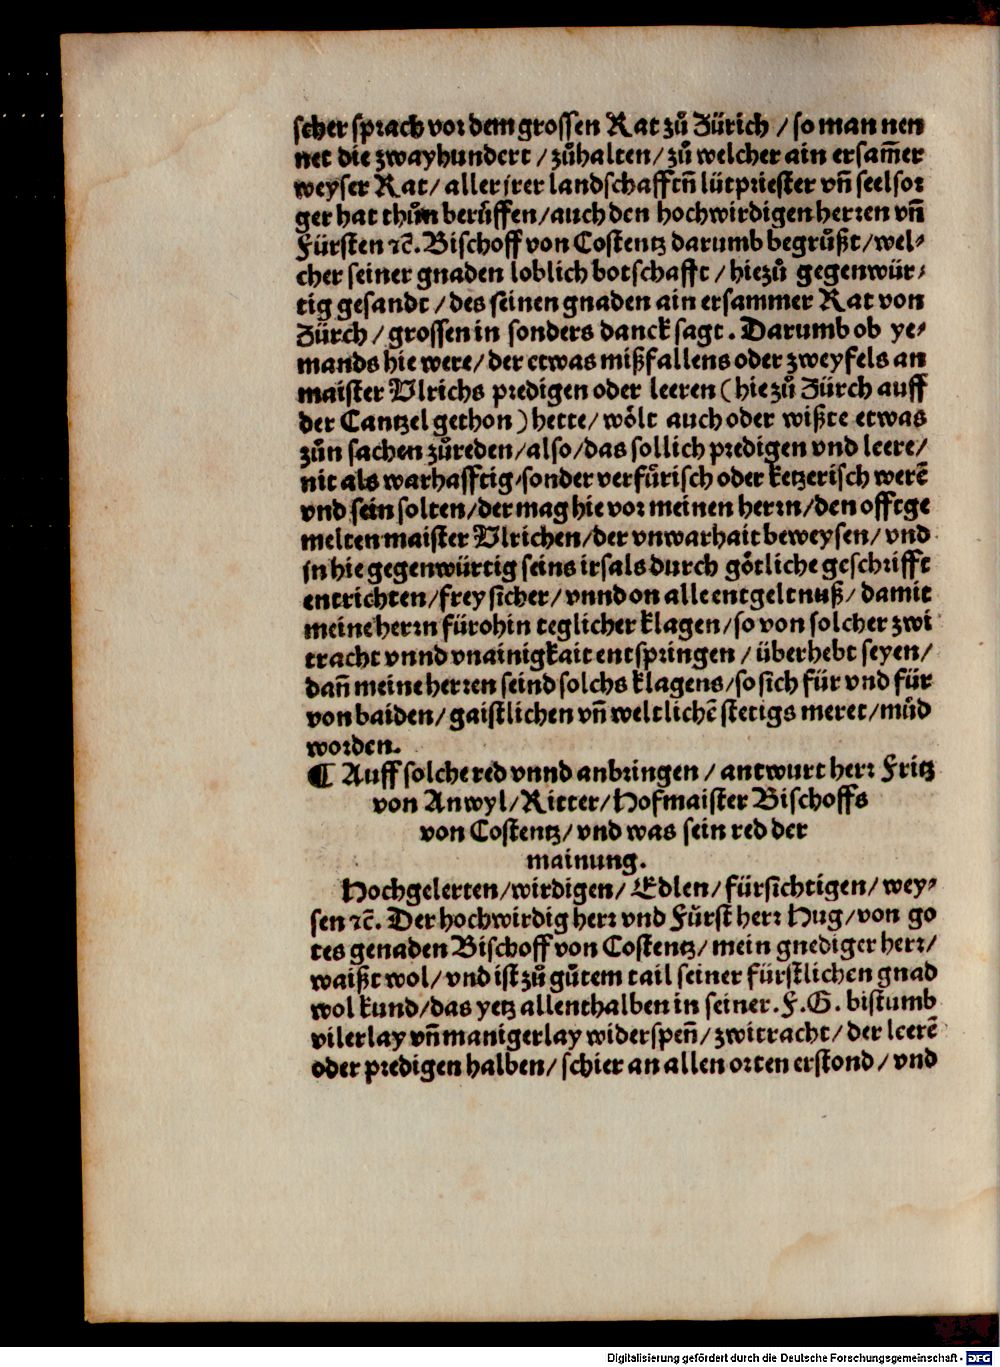 scher sprach vor dem grossen Rat zů Zürich / so man nen
net die zwayhundert / zůhalten / zů welcher ain ersam̃er
weyser Rat / aller jrer landschafftñ lütpriester vñ seelsor
ger hat thůn berůffen / auch den hochwirdigen herren vñ
Fürsten ꝛc̃. Bischoff von Costentz darumb begrůßt / wel⸗
cher seiner gnaden loblich botschafft / hiezů gegenwür⸗
tig gesandt / des seinen gnaden ain ersammer Rat von
Zürch / grossen in sonders danck sagt. Darumb ob ye⸗
mands hie were / der etwas mißfallens oder zweyfels an
maister Vlrichs predigen oder leeren (hie zů Zürch auff
der Cantzel gethon) hette / wölt auch oder wißte etwas
zůn sachen zůreden / also / das sollich predigen vnd leere /
nit als warhafftig / sonder verfůrisch oder ketzerisch werẽ
vnd sein solten / der mag hie vor meinen herrn / den offtge
melten maister Vlrichen / der vnwarhait beweysen / vnd
jn hie gegenwürtig seins irsals durch götliche geschrifft
entrichten / frey sicher / vnnd on alle entgeltnuß / damit
meine herrn fürohin teglicher klagen / so von solcher zwi
tracht vnnd vnainigkait entspringen / überhebt seyen /
dañ meine herren seind solchs klagens / so sich für vnd für
von baiden / gaistlichen vñ weltlichẽ stetigs meret / můd
worden.
¶ Auff solche red vnnd anbringen / antwurt herr Fritz
von Anwyl / Ritter / Hofmaister Bischoffs
von Costentz / vnd was sein red der
mainung.
Hochgelerten / wirdigen / Edlen / fürsichtigen / wey⸗
sen ꝛc̃. Der hochwirdig herr vnd Fürst herr Hug / von go
tes genaden Bischoff von Costentz / mein gnediger herr /
waißt wol / vnd ist zů gůtem tail seiner fürstlichen gnad
wol kund / das yetz allenthalben in seiner. F. G. bistumb
vilerlay vñ manigerlay widerspeñ / zwitracht / der leerẽ
oder predigen halben / schier an allen orten erstond / vnd
Digitalisierung gefördert durch die Deutsche Forschungsgemeinschaft - DFG